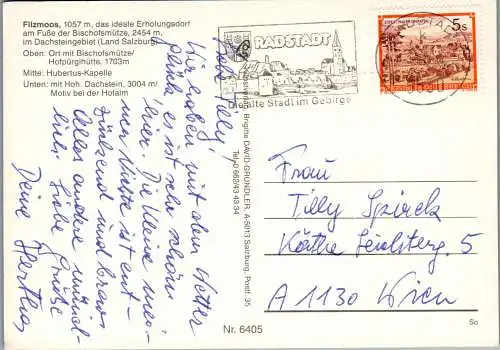 Filzmoos, 1057 m, das ideale Erholungsdorf
am Fuße der Bischofsmütze, 2454 m,
im Dachsteingebiet (Land Salzburg)
Oben: Ort mit Bischofsmütze/
Hofpürglhütte, 1703m
Mitte: Hubertus-Kapelle
Unten: mit Hoh. Dachstein, 3004 m/
Motiv bei der Hofalm
Liebe Tilly!
Wir haben mit dem Wetter
Glück, es ist sehr schön
hier. Die Kleine mei-
ner Nichte ist ent-
zückend und brav.
Alles andere münd-
lich. Liebe Grüße
Deine Hertha
RADSTADT
Die alte Stadt im Gebirge
5s
Brigitte DAVID-GRÜNDLER, A-5013 Salzburg, Postf. 35
Tel. 0 662/43 43 34
Frau
Tilly
Käthe Leichterg. 5
A 1130 Wien
Nr. 6405
So